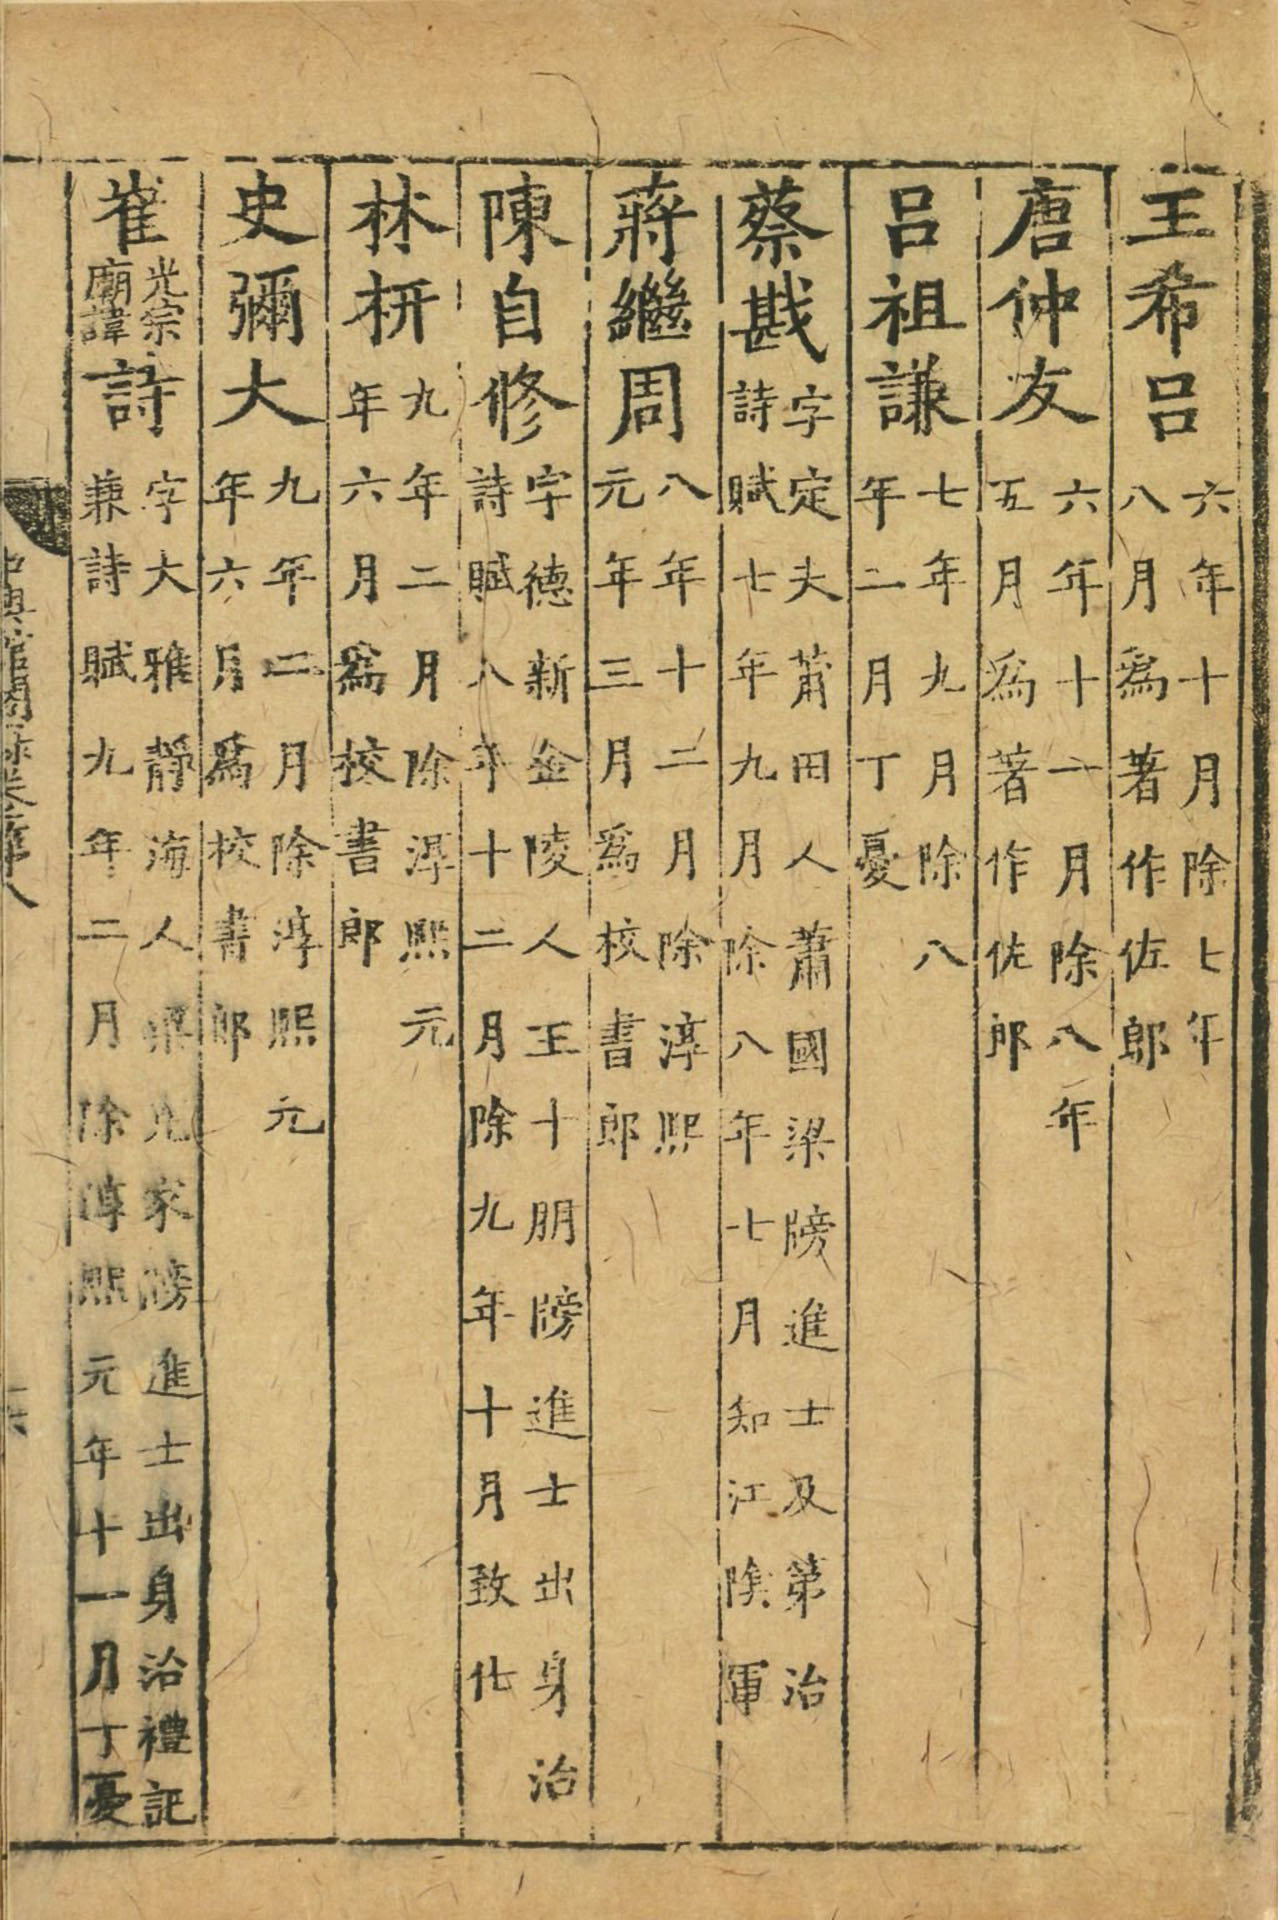 王希吕六年十月除七年八月爲著作佐郎
唐仲友六年十一月除八年五月爲著作佐郎
吕祖謙七年九月除八年二月丁憂
蔡戡字定夫莆田人蕭國梁牓進士及第治詩賦七年九月除八年七月知江隂軍
蔣繼周八年十二月除淳熙元年三月爲校書郎
陳自修字德新金陵人王十朋牓進士出身治詩賦八年十二月除九年十月致仕
林枅九年二月除淳熙元年六月爲校書郎
史彌大九年二月除淳熙元年六月爲校書郎
崔光宗廟諱詩字大雅靜海人梁克家牓進士出身治禮記兼詩賦九年二月除淳熙元年十一月丁憂
中興館閣錄卷第八